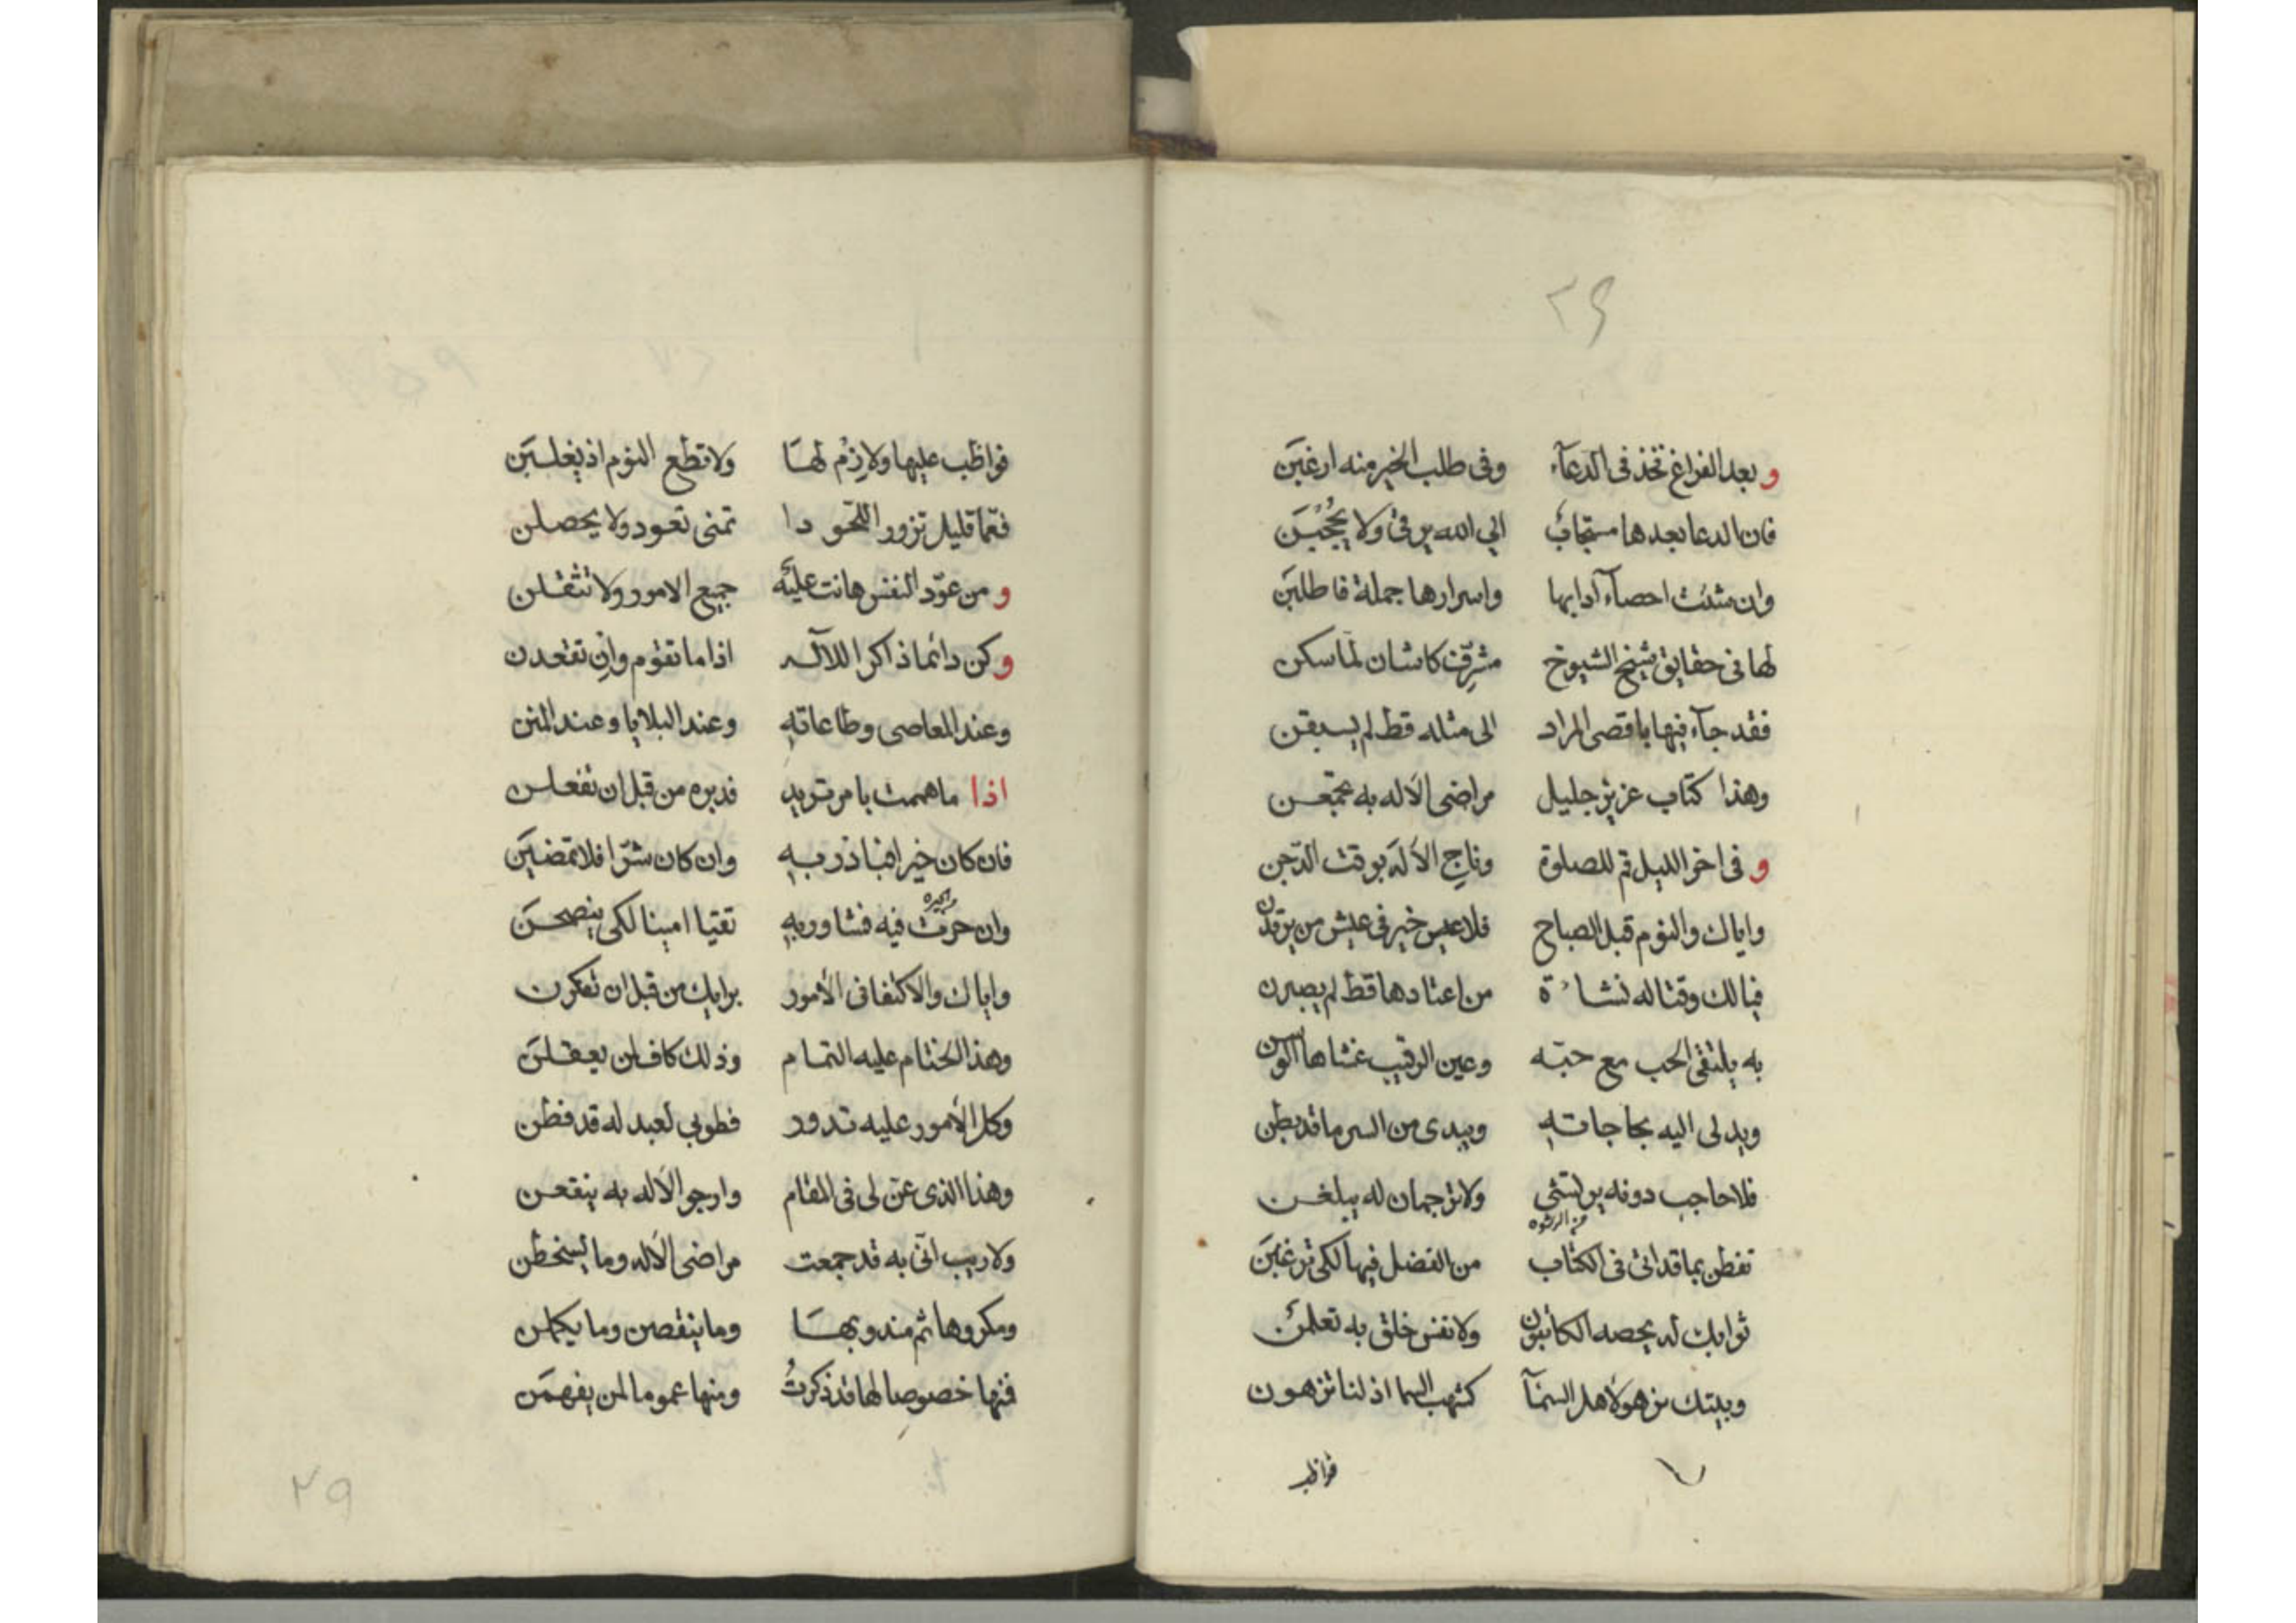 ٢٩
و بعد الفراغ تخذ فى الدعآء وفى طلب الخير منه ارغبَن
فان الدعا بعدها مستجابٌ الي الله يرقى ولا يُحُجْبَن
وان شئت احصآء آدابها واسرارها جملة فاطلبَن
لها فى حقايق شيخ الشيوخ مشرّف كاشان لما سكن
فقد جآء فيها باقصى المراد الى مثله قط لم يسبقن
وهذا كتاب عزيز جليل مراضى الاله به تجمّعن
و فى اخر الليل قم للصلوة وناجِ الاله بوقت الدّجن
واياك والنوم قبل الصباح فلا عيس خير فى عيش من يرقدن
فيالك وقتا له نشاءة من اعتادها قط لم يصبرن
به يلتقى الحب مع حبّه وعين الرقيب غشاها الوسن
ويدلى اليه بحاجاتهِ ويبدى من السر ما قد بطن
فلا حاجب دونه يرتشي ولا ترجمان له يبلغن
من الرشوه
تفطن بما قد اتى فى الكتاب من الفضل فيها لكى ترغبَن
ثوابك لم يحصه الكاتبون ولا نفس خلق به تعلمَن
وبيتك يزهو لاهل السمآ كشهب السما اذ لنا تزهون
فواظب
فواظب عليها ولازِم لهَا ولا تطع النوم اذ يغلبَن
فعمّا قليل تزور اللحودا تمنى تعود ولا يحصلن
و من عوّد النفس هانت عليَه جميع الامور ولا تثقلن
وكن دائما ذاكرا للاله اذا ما تقوم وان تقعدن
وعند المعاصى وطاعاتهِ وعند البلايا وعند المنن
اذا ما هممت بامر تريد فدبره من قبل ان تفعلن
فان كان خيرا فبادر بهِ وان كان شرّا فلا تمضيَن
من الحيره
وان حرت فيه فشاور بهِ تقيا امينا لكى ينصحَن
واياك والاكتفا فى الأمور برايك من قبل ان تفكرن
وهذا الختام عليه التمام وذلك كاف لمن يعقلَن
وكل الأمور عليه تدور فطوبى لعبد له قد فطن
وهذا الذى عنّ لى فى المقام وارجو الاله به ينفعن
ولا ريب انّى به قد جمعت مراضى الاله وما يسخطن
ومكروها ثم مندوبهَا وما ينقصن وما يكملن
فمنها خصوصا لها قد ذكرتُ ومنها عموما لمن يفهمَن
٢٩